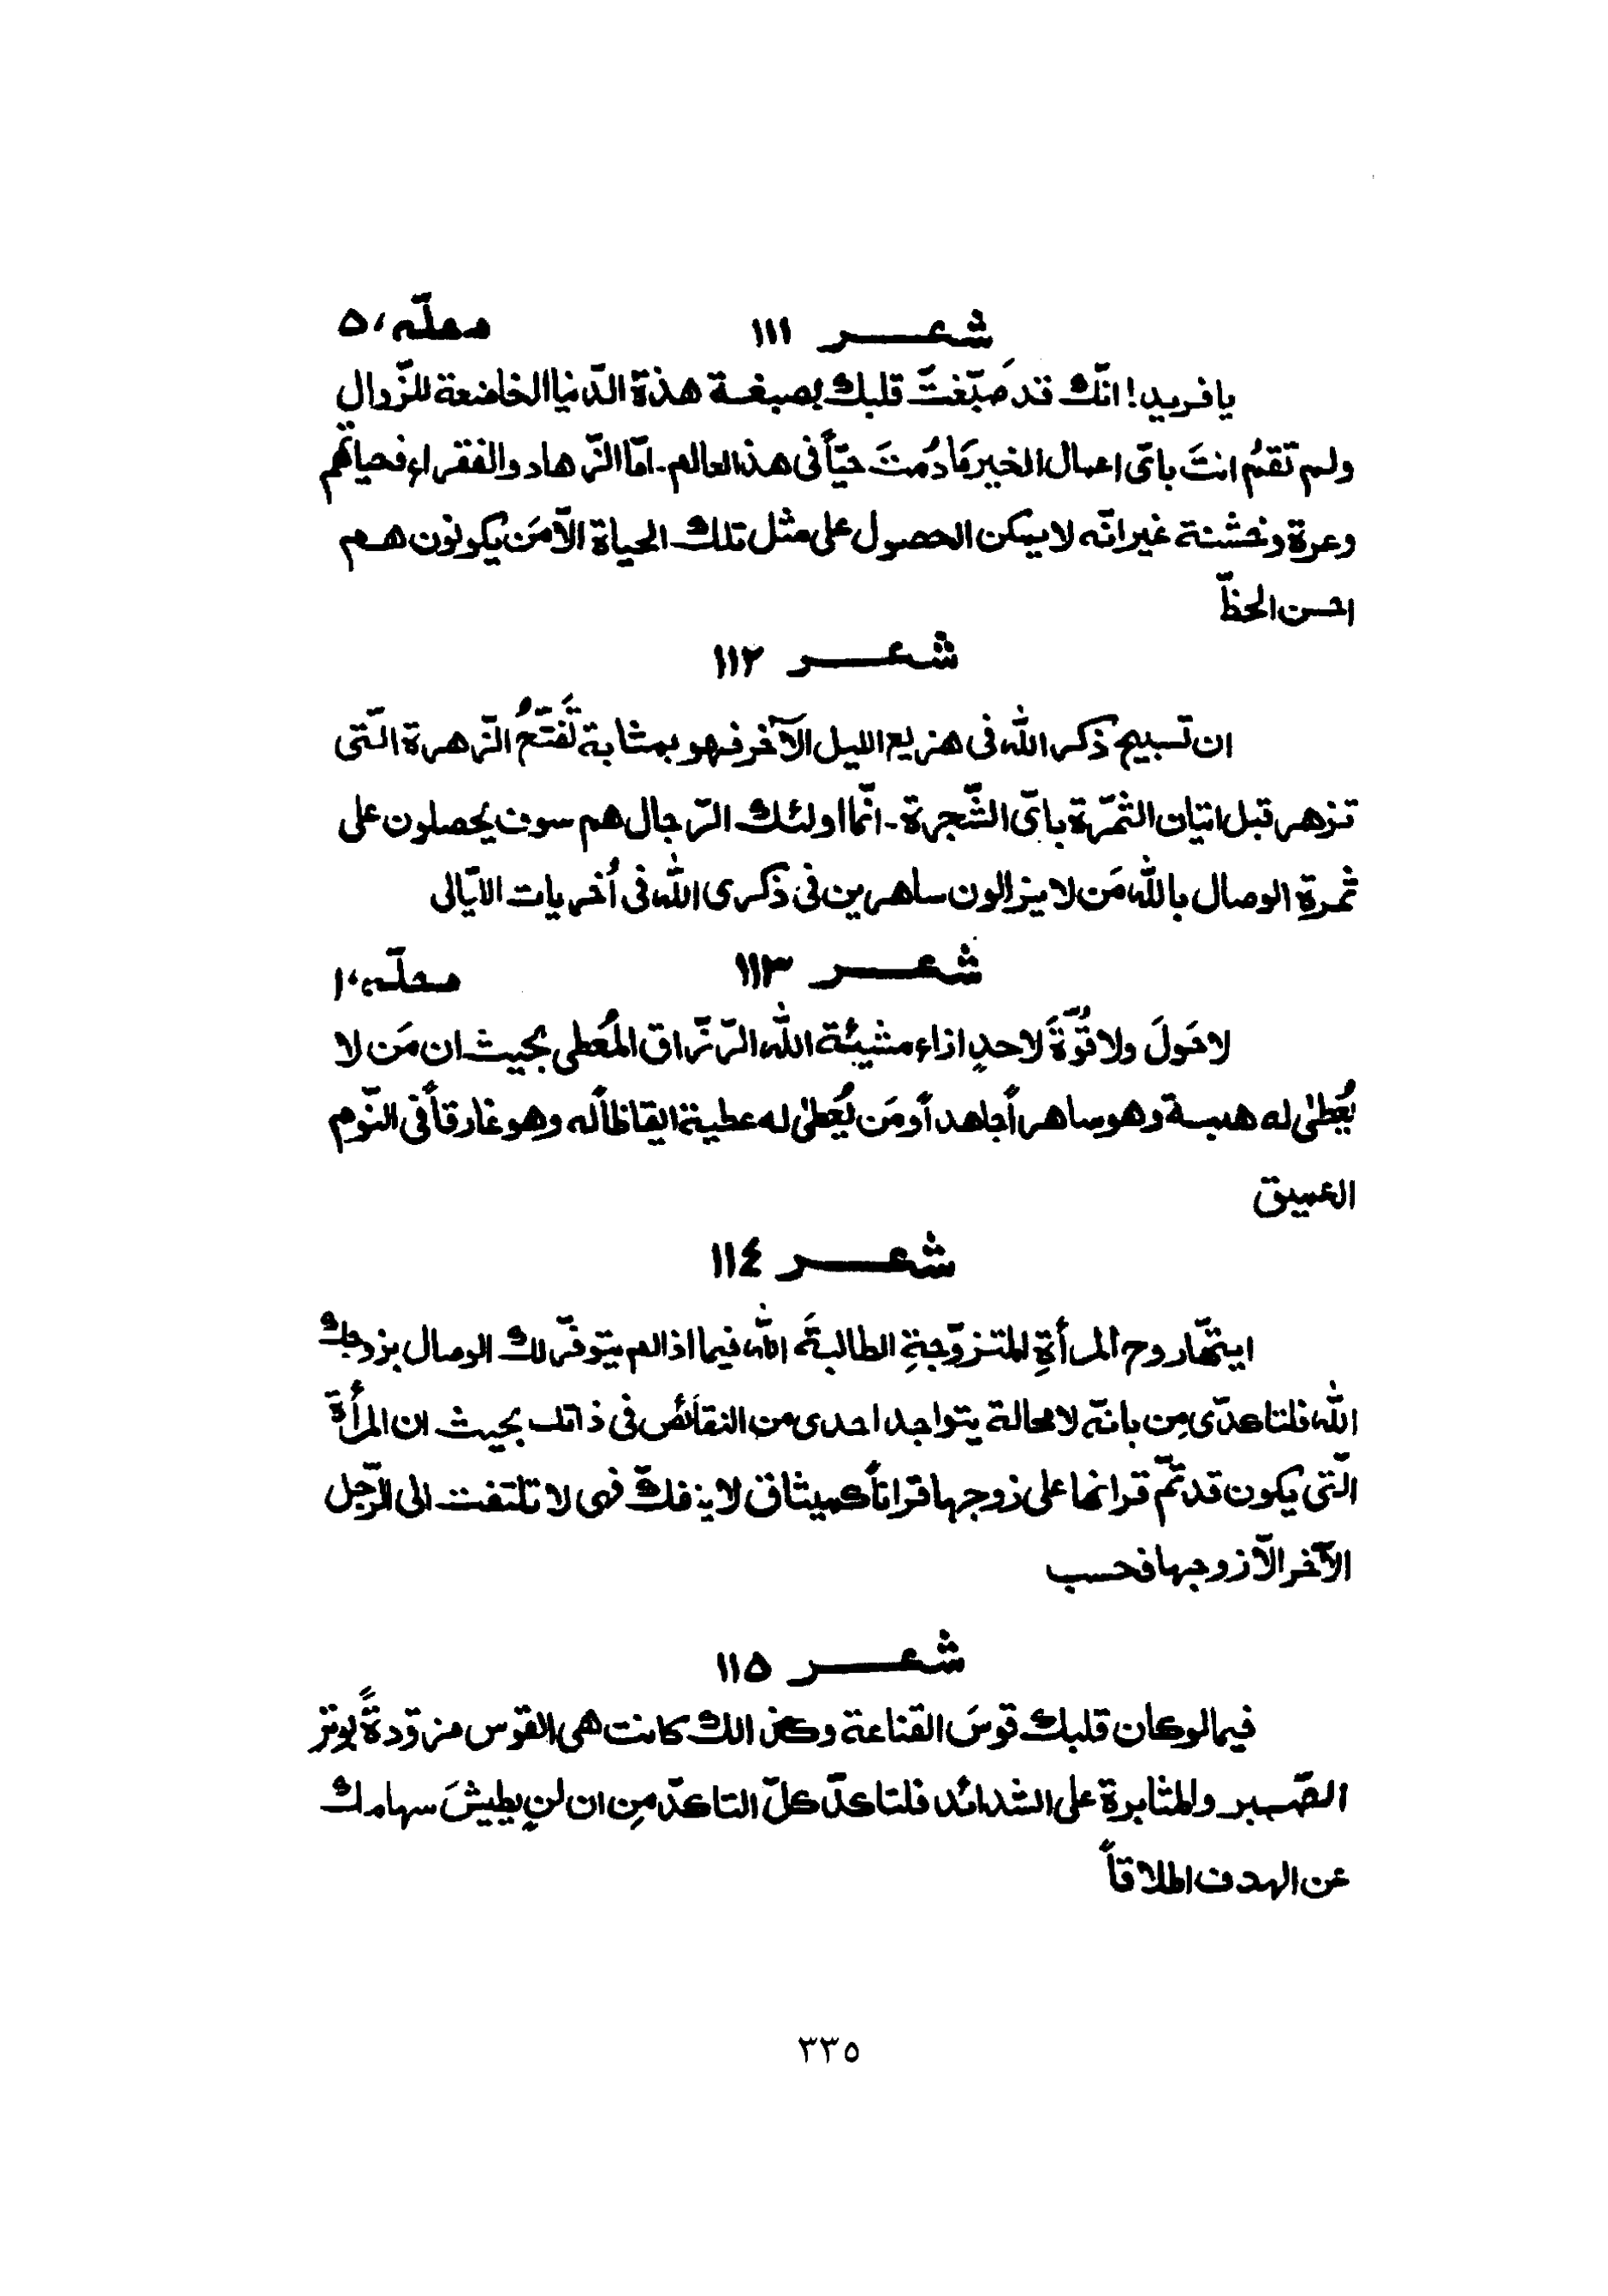 شعر ١١١ محلّه ٥،
يا فريد! انّك قد صَبّغتَ قلبك بصبغة هذة الدّنيا الخاضعة للزّوال
ولم تقمُ انتَ باىّ اعمال الخير مَا دُمتَ حيّاً فى هذ العالم۔ امّا الزّهاد والفقراء فحياتهم
وعرة وخشنة غير انّه لا يمكن الحصول على مثل تلك الحياة الاّ مَن يكونون هم
احسن الحظّ
شعر ١١٢
ان تسبيح ذكر الله فى هزيع الليل الآخر فهو بمثابة تَفتّحُ الزّهرة الّتى
تزهر قبل اتيان الثمّرة باىّ الشّجرة۔ انّما اولئك الرّجال هم سوف يحصلون على
ثمرة الوصال بالله مَن لا يزالون ساهرين فى ذكرى الله فى أُخريات الايّالى
شعر ١١٣ محلّه ١٠،
لا حَولَ ولا قُوّةَ لاحدٍ ازاء مشيئة الله الرّزّاق المُعطى بحيث ان مَن لا
يُعْطىٰ له هبة وهو ساهراً جاهداً ومَن يُعطىٰ له عطية ايقاظاً له وهو غارقاً فى النّوم
العميق
شعر ١١٤
ايتهّا روح المرأةِ المتزوّجةِ الطالبةَ الله فيما اذا لم يتوفّر لك الوصال بزوجك
الله فلتاكدّى مِن بانّه لا محالة يتواجد احدى من النقائص فى ذاتك بحيث ان المرأة
الّتى يكون قد تمّ قرانها على زوجها قراناً كميثاق لا ينفكّ فهى لا تلتفت الى الرّجل
الآخر الاّ زوجها فحسب
شعر ١١٥
فيما لو كان قلبك قوسَ القناعة وكذالك كانت هى القوس مزوّدةً بوتر
الصّبر والمثابرة على الشدائد فلتاكدّ كلّ التاكدّ مِن ان لن يطيشَ سهامك
عن الهدف اطلاقاً
٣٣٥